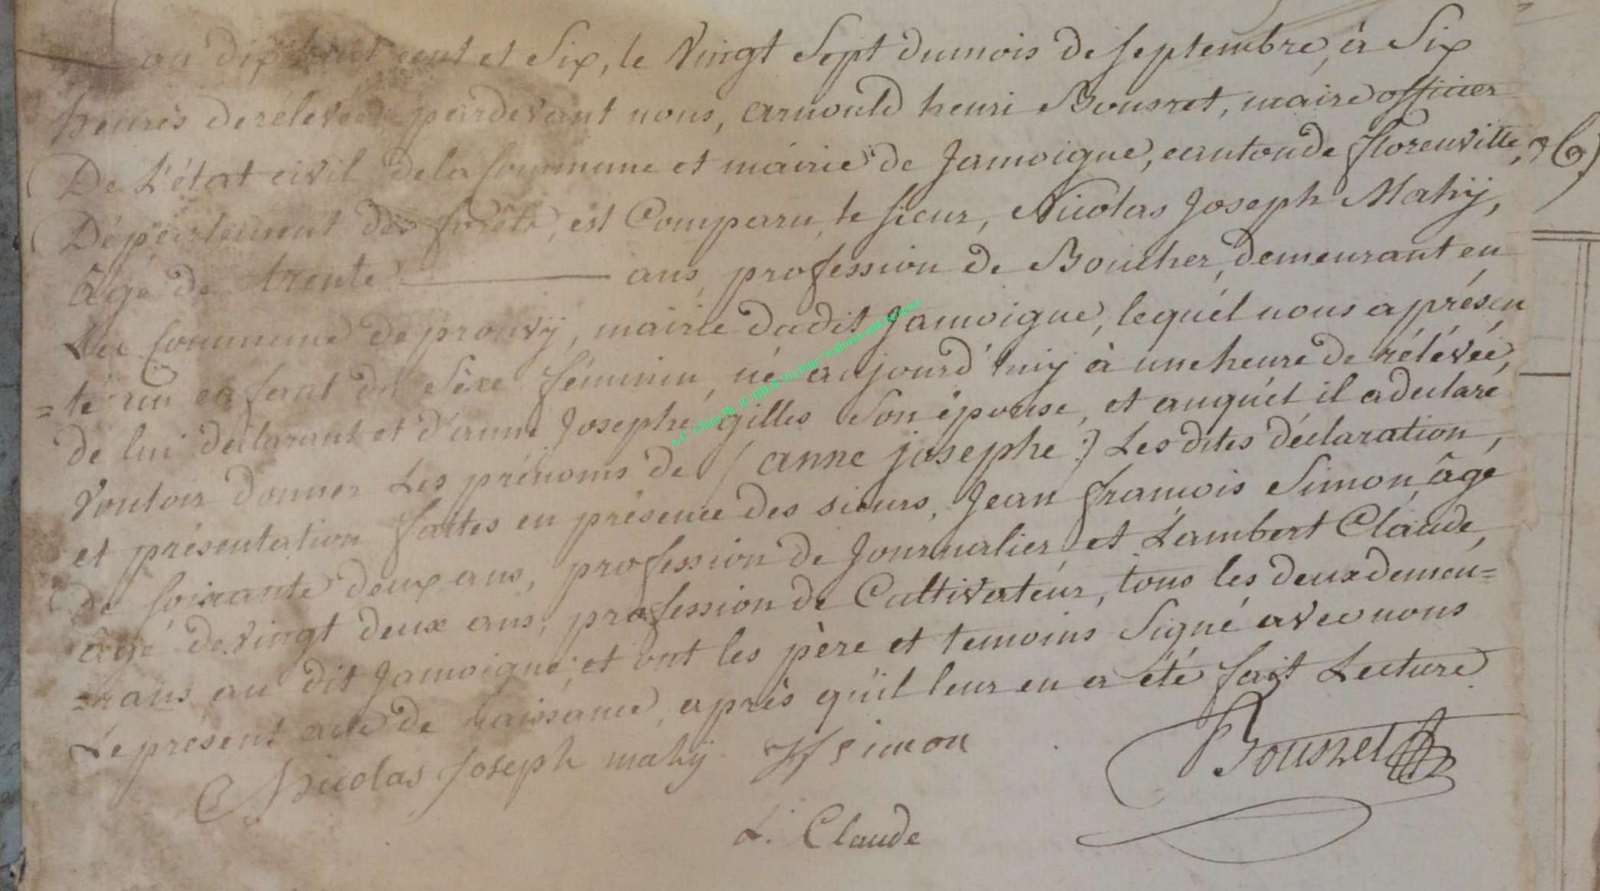 an dix huit cent et Six, le Vingt Sept dumois de septembre, à Six
heures derelevée pardevant nous, arnould henri Bousret, maire officier
De L'état civil dela Commune et mairie de Jamoigne, cantonde florenville,
Département des forêts, est Comparu, le sieur, Nicolas Joseph Mahÿ,
âgé de trente ans, profession de Boucher, demeurant en
La Commune de prouvÿ, mairie dudit Jamoigne, lequél nous a présen
=té un enfant du Séxe féminin, né aujourd'huy à uneheure de rélévée,
de lui déclarant et d'anne Josephe gilles Son épouse, et auquél il adeclaré
Vouloir donner Les prénoms de (anne josephe) Les dites déclaration,
et présentation faites en présence des sieurs, Jean françois Simon, âgé
De soixante deux ans, profession de Journalier, et Lambert Claude,
âgé de vingt deux ans, profession de Cultivateur, tous les deux demeu=
=rans au dit Jamoigne; et ont les père et temoins Signé avec nous
Le présent acte de naissance, après qu'il leur en a été fait Lecture
Nicolas Joseph mahÿ JfSimon Bousret
L. Claude